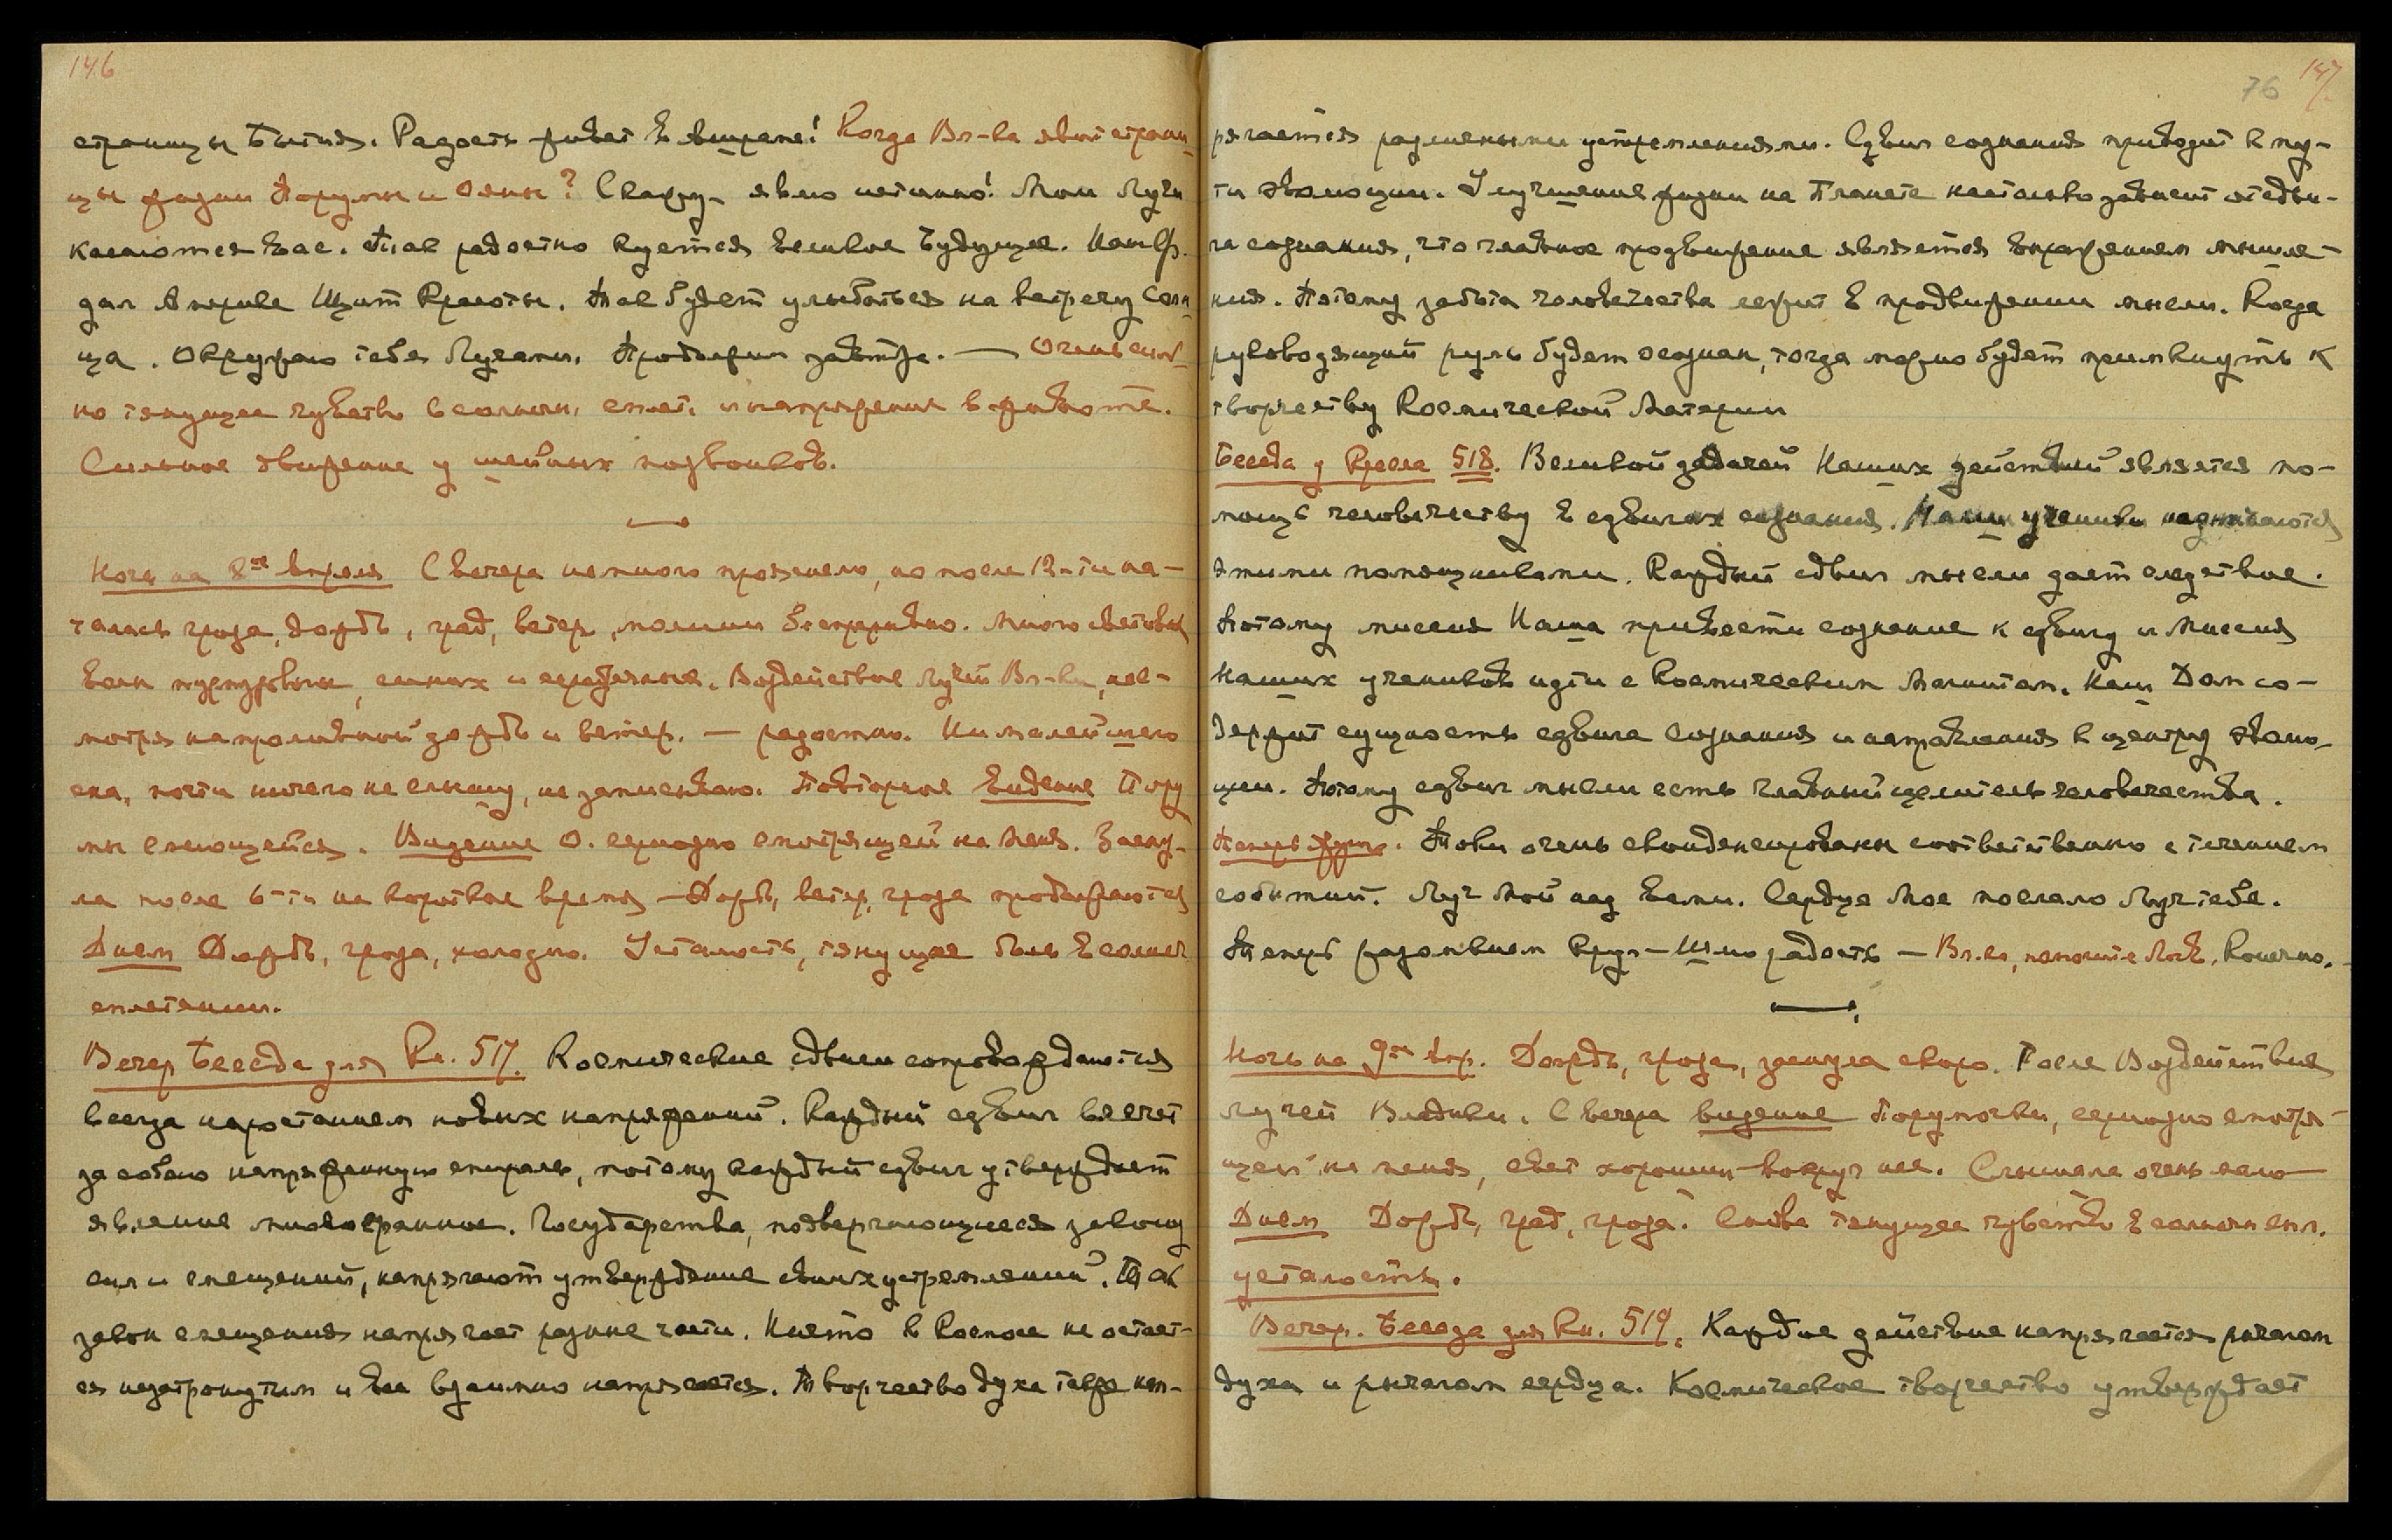 146
страницы Бытия. Радость живет в вихре! Когда Вл-ка явит страни-
цы жизни Порумы и Ояны? Скажу – явлю истинно! Мои Лучи
касаются вас. Так радостно куется великое Будущее. Наш Ф.
дал в мире Щит Красоты. Так будет улыбаться на встречу Солн-
ца. Окружаю тебя Лучами. Продолжим завтра. — Очень силь-
но тянущее чувство в солнечн. сплет. и напряжение в животе.
Сильное движение у шейных позвонков.
Ночь на 8ое Апреля С вечера немного прояснело, но после 12-ти на-
чалась гроза, дождь, град, ветер, молнии беспрерывно. Много световых
волн пурпуровых, синих и серебряных. Воздействие лучей Вл-ки, нес-
мотря на проливной дождь и ветер. — радостно. Ни малейшего
сна, почти ничего не слышу, не записываю. Повторное видение Пору
мы смеющейся. Видение О. серьезно смотрящей на меня. Засну-
ла после 6-ти на короткое время — Дождь, ветер, гроза продолжаются
Днем Дождь, гроза, холодно. Усталость, тянущая боль в солнеч
сплетении.
Вечер Беседа для Кн. 517. Космические сдвиги сопровождаются
всегда нарастанием новых напряжений. Каждый сдвиг влечет
за собою напряженную спираль, потому каждый сдвиг утверждает
явление многогранное. Государства, подвергающиеся закону
сил и смещений, напрягают утверждение своих устремлений. Так
закон смещения напрягает разные части. Ничто в Космосе не остает-
ся незатронутым и все взаимно напрягается. Творчество духа также нап-
76 147
рягается различными устремлениями. Сдвиг сознания приводит к пу-
ти эволюции. Улучшение жизни на Планете настолько зависит от сдви-
га сознания, что главное продвижение является выражением мышле-
ния. Потому забота человечества лежит в продвижении мысли. Когда
руководящий руль будет осознан, тогда можно будет примкнуть к
творчеству Космической Материи
Беседа у Кресла 518. Великой задачей Наших действий является по-
мощь человечеству в сдвигах сознания. Наши ученики назначаются
этими помощниками. Каждый сдвиг мысли дает следствие.
Потому миссия Наша привести сознание к сдвигу и миссия
Наших учеников идти с Космическим Магнитом. Наш Дом со-
держит сущность сдвига сознания и направления к центру эволю-
ции. Потому сдвиг мысли есть главный целитель человечества.
Токи очень сконденсированы соответственно с течением
событий. Луч Мой над вами. Сердце Мое послало Луч тебе.
Теперь разомкнем Круг – Шлю радость — Вл-ка, помогите Лог. Конечно.
Ночь на 9ое Апр. Дождь, гроза, заснула скоро. После Воздействия
лучей Владыки. С вечера видение Порумочки, серьезно смотря-
щей на меня, свет хороший вокруг нее. Слышала очень мало
Днем Дождь, град, гроза. Снова тянущее чувство в солнечн спл.
усталость.
Вечер. Беседа для Кн. 519. Каждое действие напрягается рычагом
духа и рычагом сердца. Космическое творчество утверждает